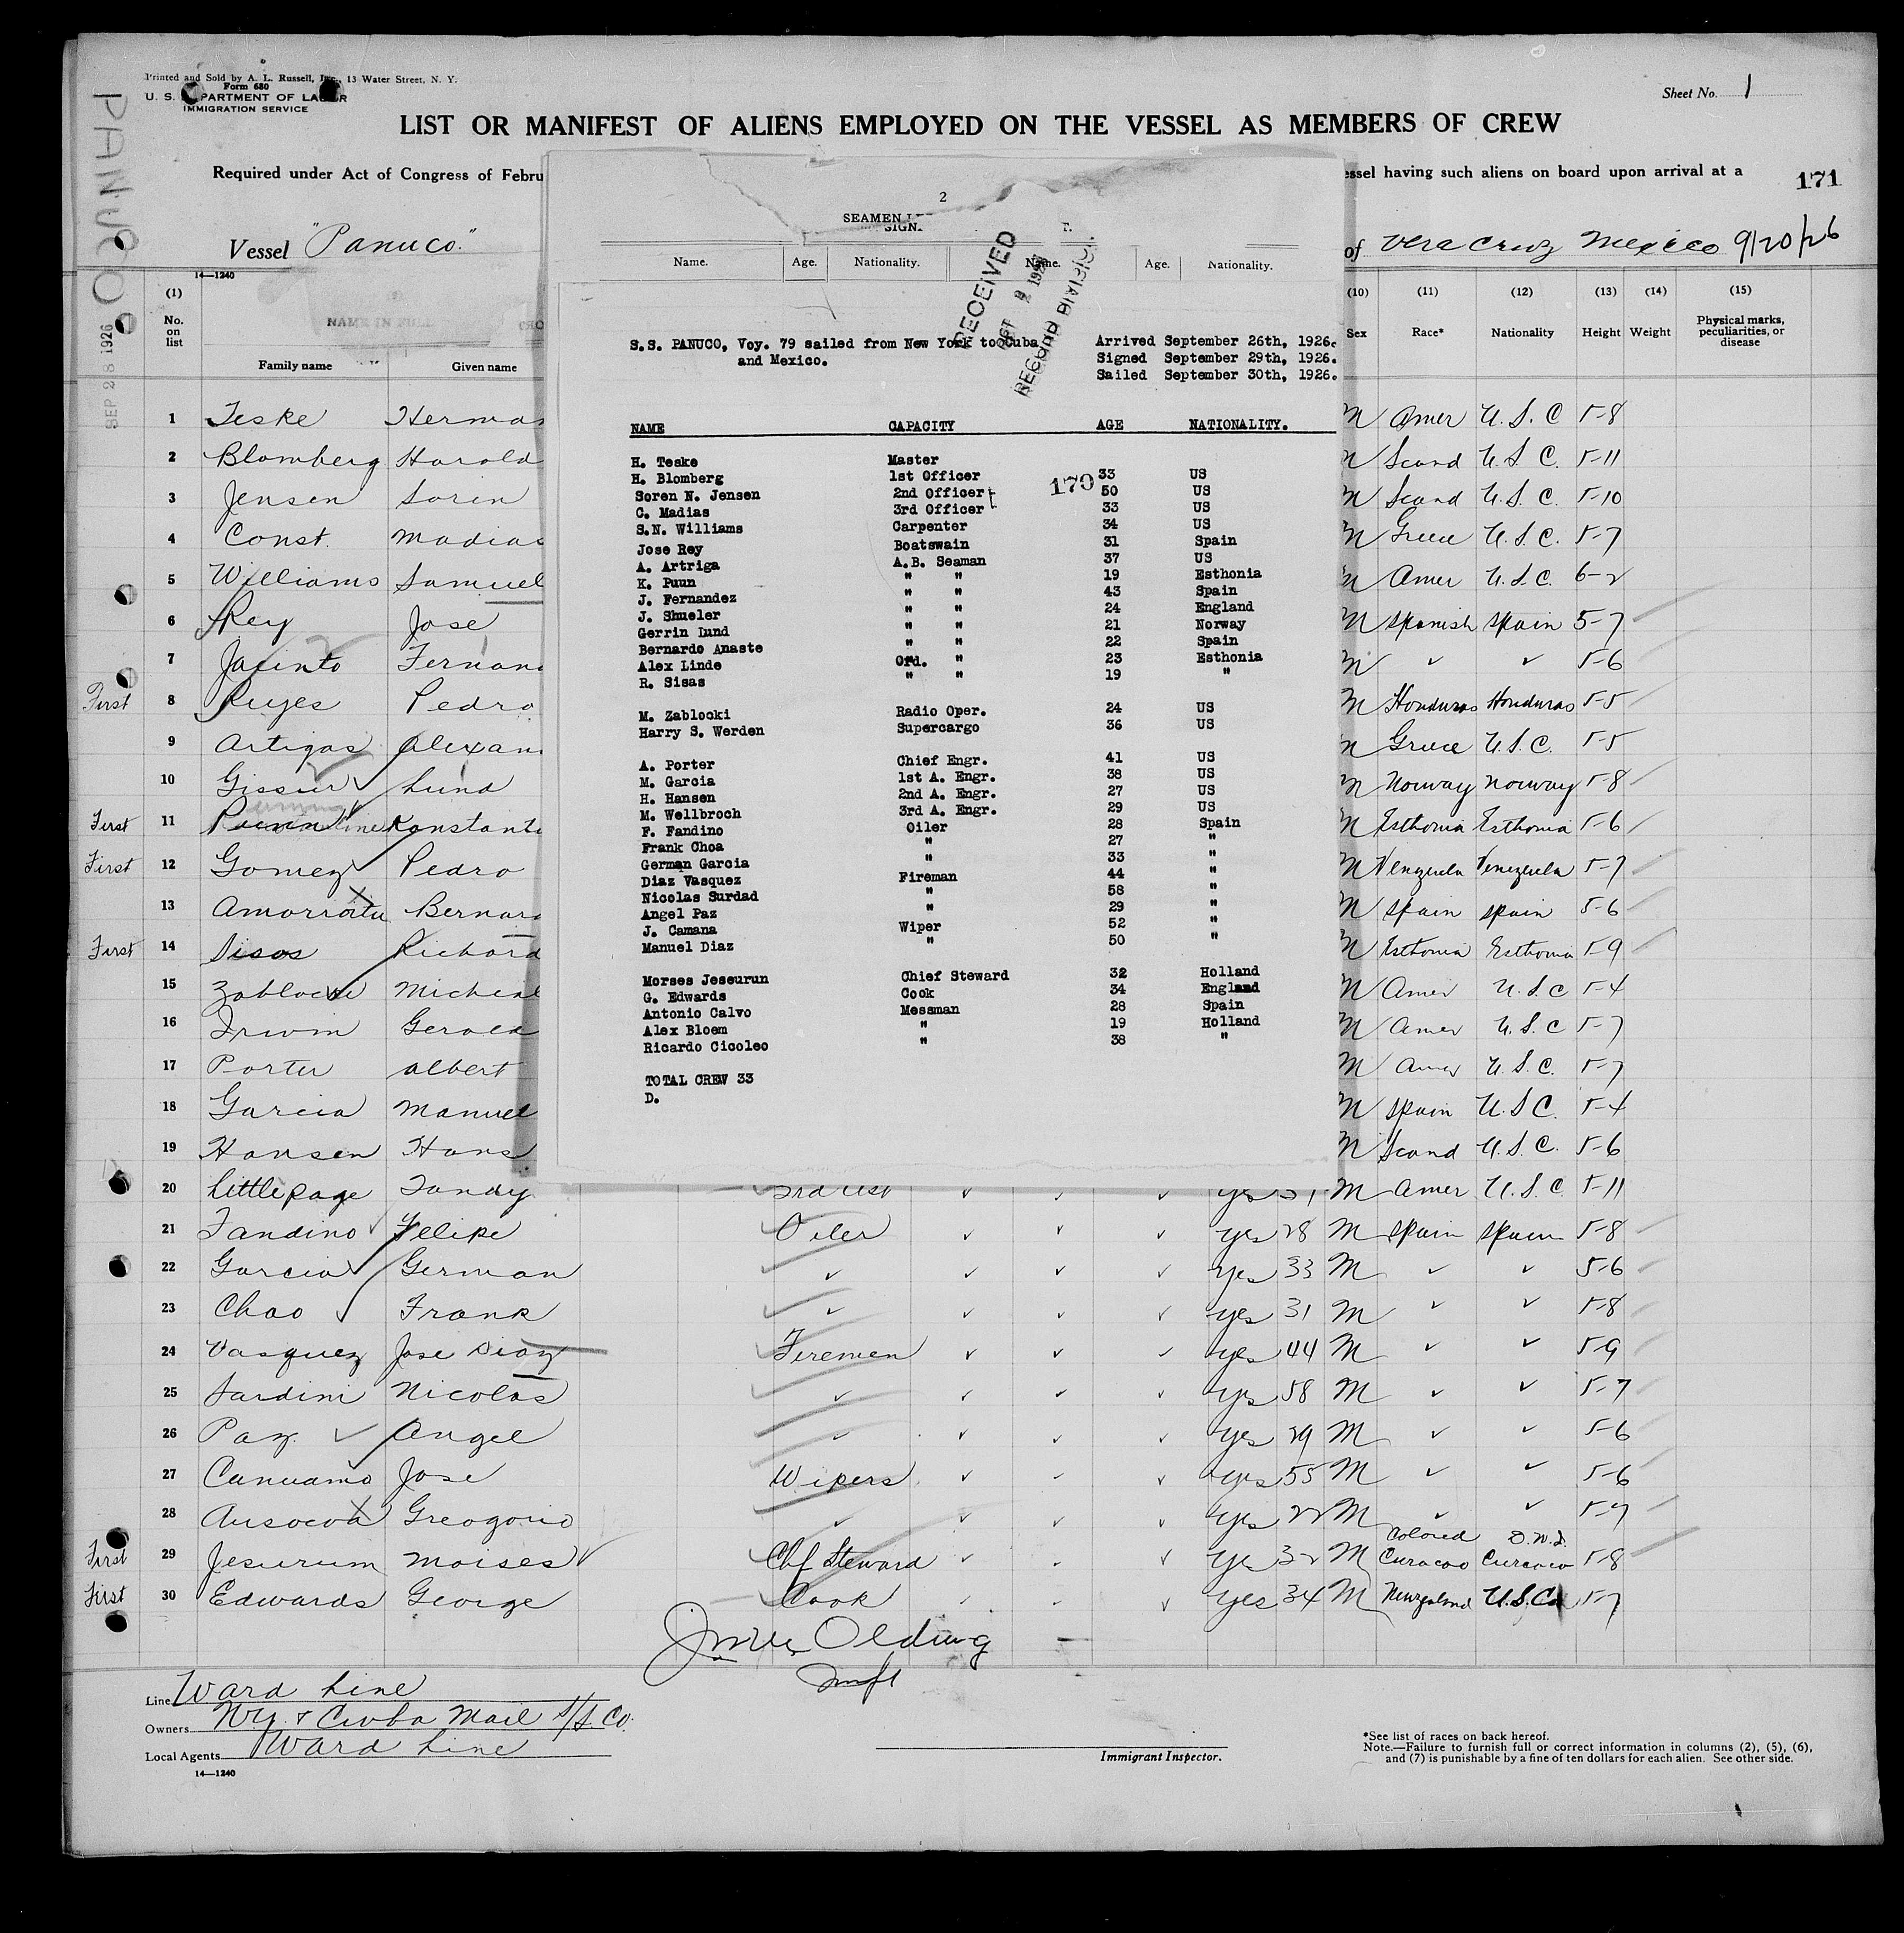 Printed and Sold by A. L. Russell, Inc., 13 Water Street, N. Y.
Form 680
U. S. DEPARTMENT OF LABOR
IMMIGRATION SERVICE
Sheet No. 1
LIST OR MANIFEST OF ALIENS EMPLOYED ON THE VESSEL AS MEMBERS OF CREW
Required under Act of Congress of Febru
essel having such aliens on board upon arrival at a
171
PANUCO
SEP 28 1926
Vessel "Panuco."
of Vera Cruz Mexico 9/20/26
14—1240
(1) No. on list
NAME IN FULL
Family name Given name
(10) Sex (11) Race* (12) Nationality (13) Height (14) Weight (15) Physical marks, peculiarities, or disease
2
SEAMEN
SIGN.
Name. Age. Nationality. Name. Age. Nationality.
RECEIVED
1926
RECORD DIVISION
S.S. PANUCO, Voy. 79 sailed from New York to Cuba
and Mexico.
Arrived September 26th, 1926.
Signed September 29th, 1926.
Sailed September 30th, 1926.
NAME CAPACITY AGE NATIONALITY.
170
H. Teske Master
H. Blomberg 1st Officer 33 US
Soren N. Jensen 2nd Officer 50 US
C. Madias 3rd Officer 33 US
S.N. Williams Carpenter 34 US
Jose Rey Boatswain 31 Spain
A. Artriga A.B. Seaman 37 US
K. Puun " " 19 Esthonia
J. Fernandez " " 43 Spain
J. Shueler " " 24 England
Gerrin Lund " " 21 Norway
Bernardo Anaste " " 22 Spain
Alex Linde Ord. " 23 Esthonia
R. Sisas " " 19 "
M. Zablocki Radio Oper. 24 US
Harry S. Werden Supercargo 36 US
A. Porter Chief Engr. 41 US
M. Garcia 1st A. Engr. 38 US
H. Hansen 2nd A. Engr. 27 US
M. Wellbroch 3rd A. Engr. 29 US
F. Fandino Oiler 28 Spain
Frank Choa " 27 "
German Garcia " 33 "
Diaz Vasquez Fireman 44 "
Nicolas Surdad " 58 "
Angel Paz " 29 "
J. Camana Wiper 52 "
Manuel Diaz " 50 "
Morses Jeseurun Chief Steward 32 Holland
G. Edwards Cook 34 England
Antonio Calvo Messman 28 Spain
Alex Bloem " 19 Holland
Ricardo Cicoleo " 38 "
TOTAL CREW 33
D.
1 Teske Herman M Amer U.S.C 5-8
2 Blomberg Harold M Scand U.S.C. 5-11
3 Jensen Sorin M Scand U.S.C. 5-10
4 Const. Madias M Greece U.S.C. 5-7
5 Williams Samuel M Amer U.S.C. 6-2
6 Rey Jose M Spanish Spain 5-7
7 Jacinto Fernan M ✓ ✓ 5-6
First 8 Reyes Pedro M Honduras Honduras 5-5
9 Artigas Alexan M Greece U.S.C. 5-5
10 Gissur Lund M Norway Norway 5-8
First 11 Konstanti M Esthonia Esthonia 5-6
First 12 Gomez Pedro M Venezuela Venezuela 5-7
13 Amorrortu Bernar M Spain Spain 5-6
First 14 Sisos Richard M Esthonia Esthonia 5-9
15 Zablocki Micheal M Amer U.S.C 5-4
16 Irwin Gerald M Amer U.S.C 5-7
17 Porter Albert M Amer U.S.C. 5-7
18 Garcia Manuel M Spain U.S.C. 5-4
19 Hansen Hans M Scand U.S.C. 5-6
20 Littlepage Tandy 3rd Asst ✓ ✓ ✓ yes 31 M Amer U.S.C 5-11
21 Fandino Felipe Oiler ✓ ✓ ✓ yes 28 M Spain Spain 5-8
22 Garcia German ✓ ✓ ✓ ✓ yes 33 M ✓ ✓ 5-6
23 Chao Frank ✓ ✓ ✓ ✓ yes 31 M ✓ ✓ 5-8
24 Vasquez Jose Diaz Firemen ✓ ✓ ✓ yes 44 M ✓ ✓ 5-9
25 Sardini Nicolas ✓ ✓ ✓ ✓ yes 58 M ✓ ✓ 5-7
26 Paz. Angel ✓ ✓ ✓ ✓ yes 29 M ✓ ✓ 5-6
27 Canuamo Jose Wipers ✓ ✓ ✓ yes 55 M ✓ ✓ 5-6
28 Ausocoa Greogorio ✓ ✓ ✓ ✓ yes 22 M ✓ ✓ 5-7
Colored D.W.I.
First 29 Jesurum Moises Chf Steward ✓ ✓ yes 32 M Curacao Curacao 5-8
First 30 Edwards George Cook ✓ ✓ ✓ yes 34 M Newzealand U.S.C. 5-7
Olding
Line Ward Line
Owners NY & Cuba Mail S/S. Co.
Local Agents Ward Line
14—1240
Immigrant Inspector.
*See list of races on back hereof.
Note.—Failure to furnish full or correct information in columns (2), (5), (6),
and (7) is punishable by a fine of ten dollars for each alien. See other side.